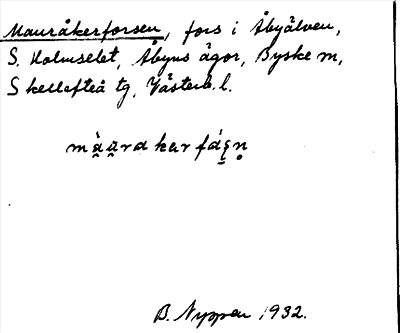 Mauråkerforsen, fors i Åbyälven,
S. Holmselet, Åbyns ägor, Byske sn,
Skellefteå tg, Västerb. l.
B. Nyppen 1932.